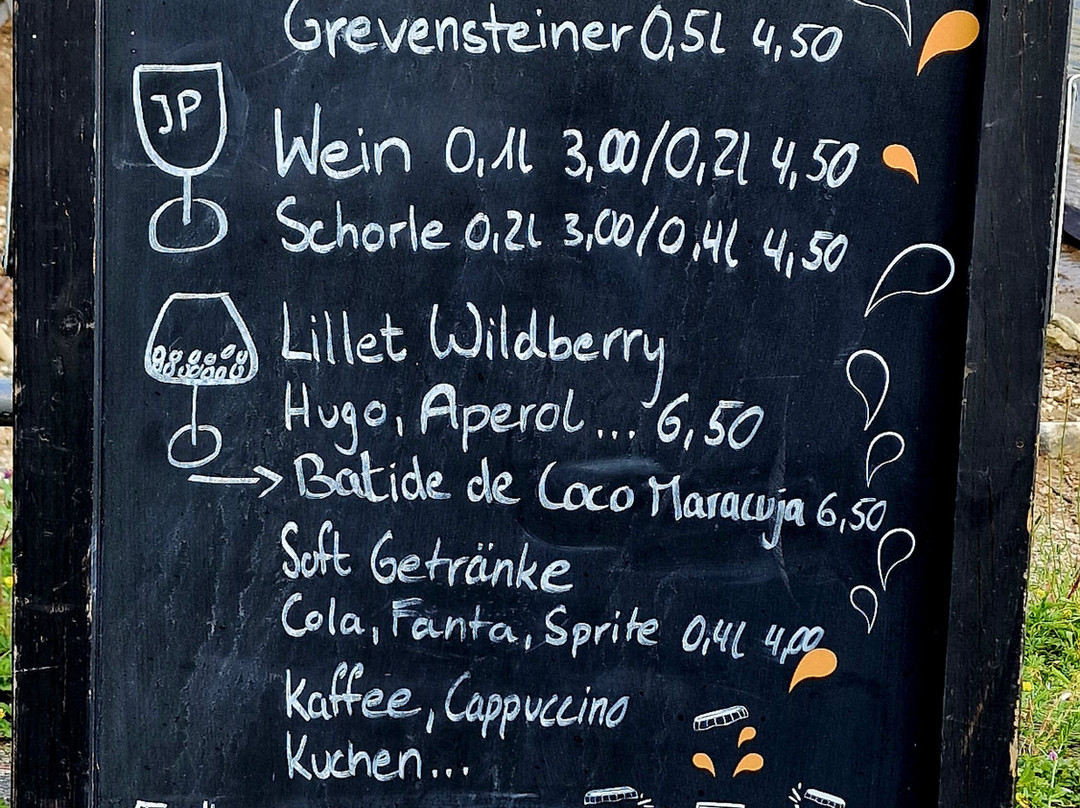 Grevensteiner 0,5l 4,50
JP
Wein 0,1l 3,00/0,2l 4,50
Schorle 0,2l 3,00/0,4l 4,50
Lillet Wildberry
Hugo, Aperol... 6,50
Batide de Coco Maracuja 6,50
Soft Getränke
Cola, Fanta, Sprite 0,4l 4,00
Kaffee, Cappuccino
Kuchen...